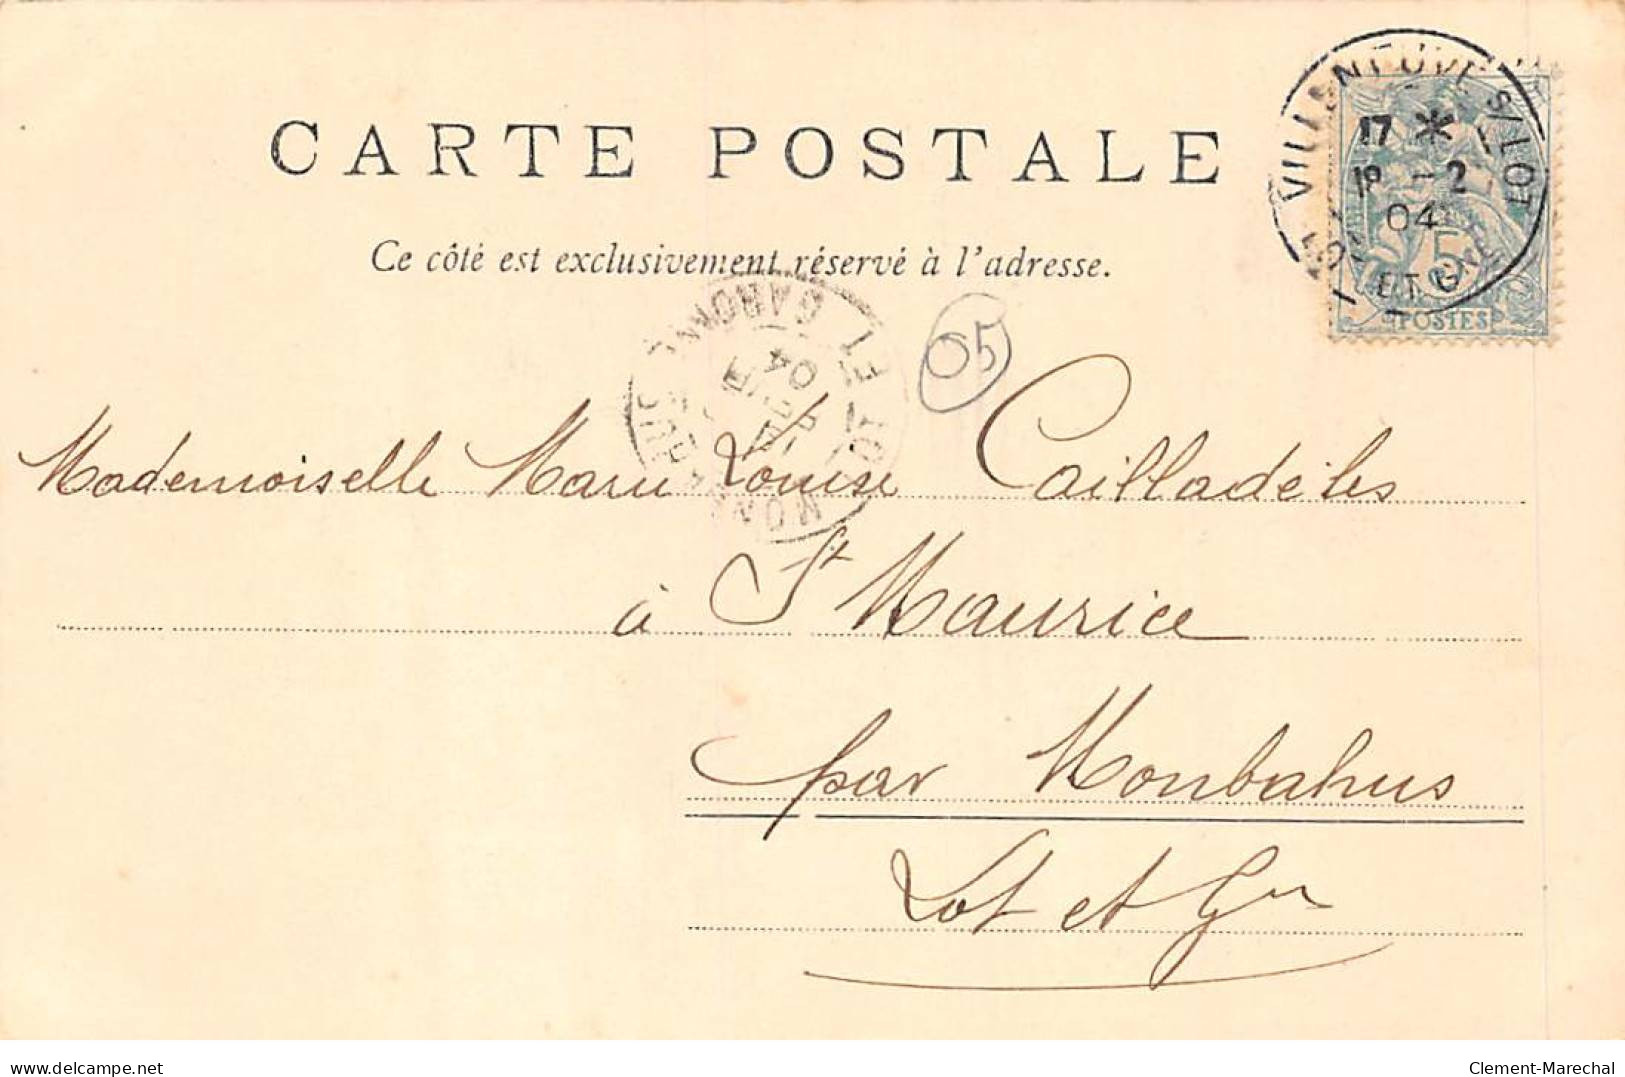 CARTE POSTALE
Ce côté est exclusivement réservé à l'adresse.
VILLENEUVE S/LOT
17 *
18 - 2
04
LOT ET GARONNE
5
POSTES
LOT ET GARONNE
04
05
Mademoiselle Marie Louise Cailladèles
à St Maurice
par Monbahus
Lot et Gne
www.delcampe.net
Clement-Marechal